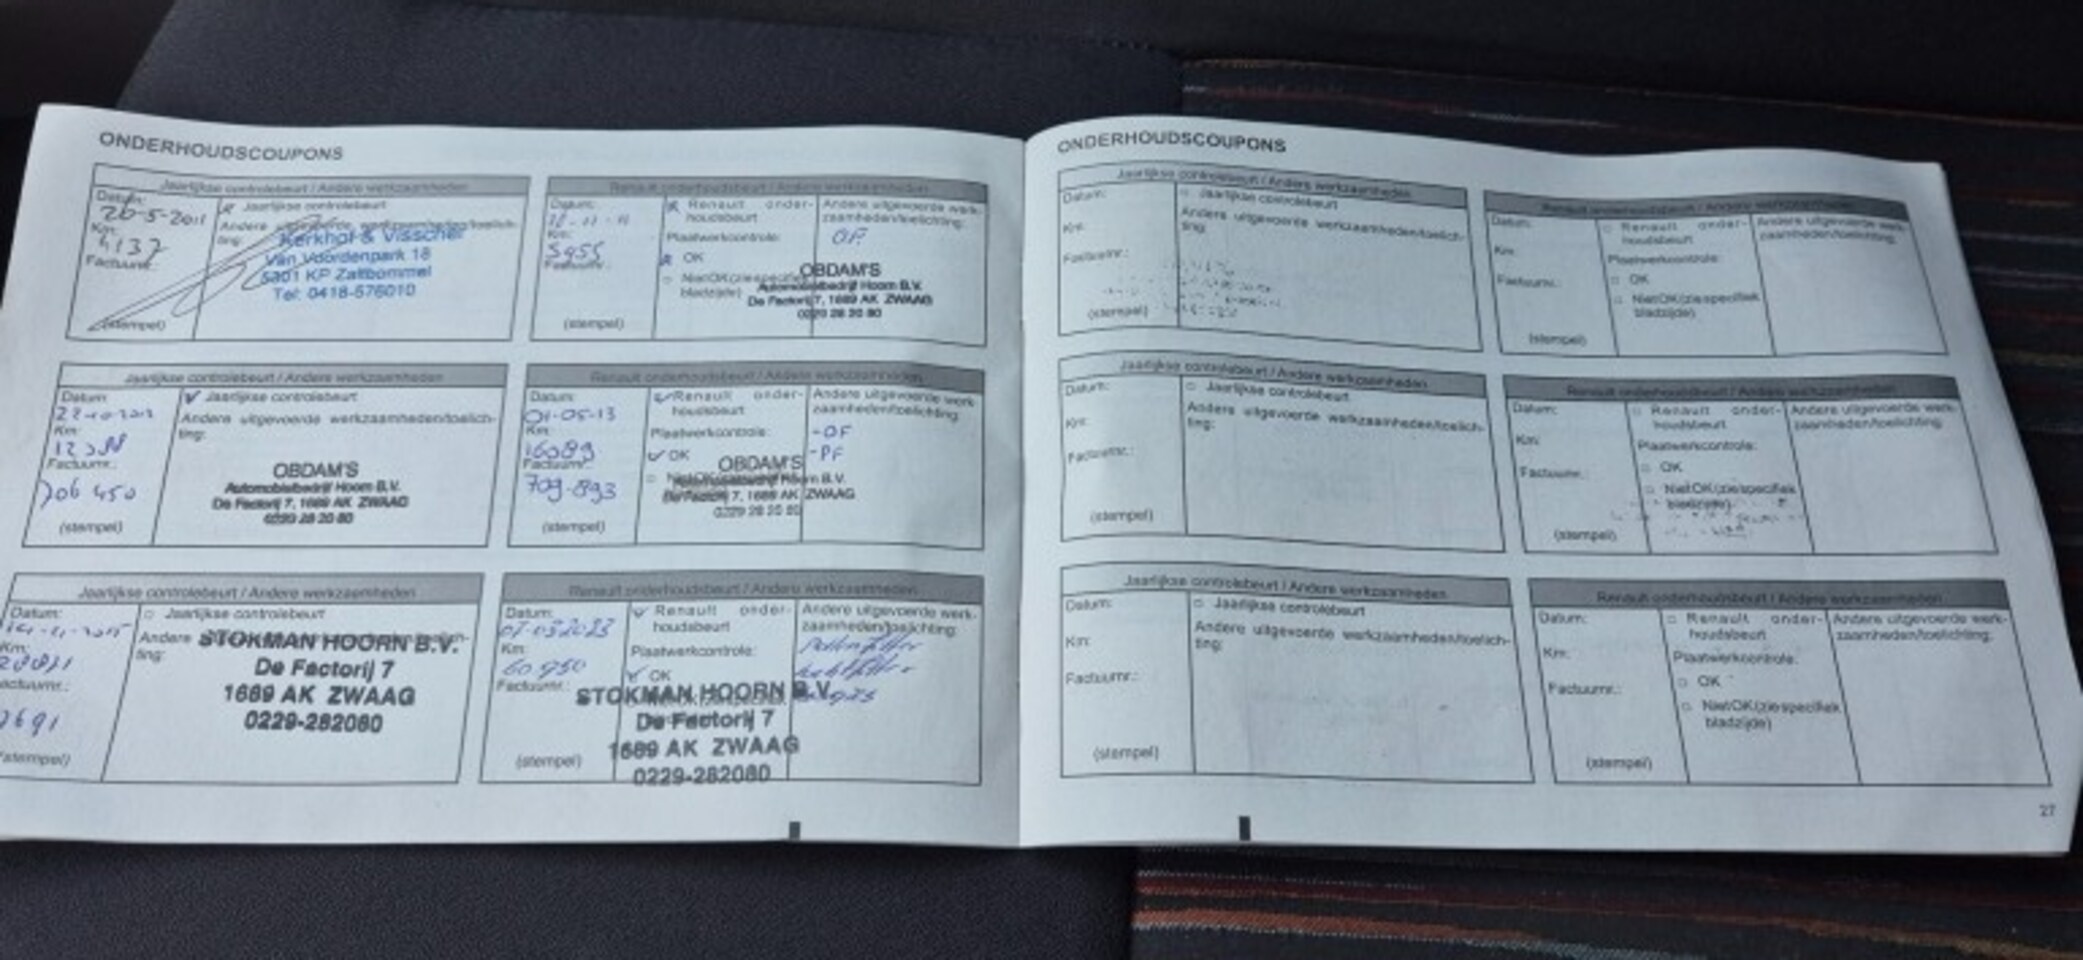 ONDERHOUDSCOUPONS
Jaarlijkse controlebeurt / Andere werkzaamheden
Datum:
26-5-2011
Km:
4137
Factuurnr.:
(stempel)
Jaarlijkse controlebeurt
Andere
ting:
Kerkhof & Visscher
Van Voordenpark 18
5301 KP Zaltbommel
Tel: 0418-576010
Renault onderhoudsbeurt / Andere werkzaamheden
Datum:
Km:
5955
Factuurnr.:
(stempel)
Renault onder-
houdsbeurt
Plaatwerkcontrole:
OK
Niet OK (zie specifiek
bladzijde)
Andere uitgevoerde werk-
zaamheden/toelichting:
OF
OBDAM'S
Automobielbedrijf Hoorn B.V.
De Factorij 7, 1689 AK ZWAAG
0229 28 20 80
Jaarlijkse controlebeurt / Andere werkzaamheden
Datum:
22-10-2012
Km:
Factuurnr.:
706 450
(stempel)
Jaarlijkse controlebeurt
Andere uitgevoerde werkzaamheden/toelich-
ting:
OBDAM'S
Automobielbedrijf Hoorn B.V.
De Factorij 7, 1689 AK ZWAAG
0229 28 20 80
Renault onderhoudsbeurt / Andere werkzaamheden
Datum:
01-05-13
Km:
16089
Factuurnr.:
709-893
(stempel)
Renault onder-
houdsbeurt
Plaatwerkcontrole:
OK
Andere uitgevoerde werk-
zaamheden/toelichting:
-OF
-PF
OBDAM'S
Automobielbedrijf Hoorn B.V.
De Factorij 7, 1689 AK ZWAAG
0229 28 20 80
Jaarlijkse controlebeurt / Andere werkzaamheden
Datum:
Km:
(stempel)
Jaarlijkse controlebeurt
Andere
ting:
STOKMAN HOORN B.V.
De Factorij 7
1689 AK ZWAAG
0229-282080
Renault onderhoudsbeurt / Andere werkzaamheden
Datum:
Km:
60.950
Factuurnr.:
(stempel)
Renault onder-
houdsbeurt
Plaatwerkcontrole:
OK
Andere uitgevoerde werk-
zaamheden/toelichting:
STOKMAN HOORN B.V.
De Factorij 7
1689 AK ZWAAG
0229-282080
ONDERHOUDSCOUPONS
Jaarlijkse controlebeurt / Andere werkzaamheden
Datum:
Km:
Factuurnr.:
(stempel)
Jaarlijkse controlebeurt
Andere uitgevoerde werkzaamheden/toelich-
ting:
Renault onderhoudsbeurt / Andere werkzaamheden
Datum:
Km:
Factuurnr.:
(stempel)
Renault onder-
houdsbeurt
Plaatwerkcontrole:
OK
Niet OK (zie specifiek
bladzijde)
Andere uitgevoerde werk-
zaamheden/toelichting:
Jaarlijkse controlebeurt / Andere werkzaamheden
Datum:
Km:
Factuurnr.:
(stempel)
Jaarlijkse controlebeurt
Andere uitgevoerde werkzaamheden/toelich-
ting:
Renault onderhoudsbeurt / Andere werkzaamheden
Datum:
Km:
Factuurnr.:
(stempel)
Renault onder-
houdsbeurt
Plaatwerkcontrole:
OK
Niet OK (zie specifiek
bladzijde)
Andere uitgevoerde werk-
zaamheden/toelichting:
Jaarlijkse controlebeurt / Andere werkzaamheden
Datum:
Km:
Factuurnr.:
(stempel)
Jaarlijkse controlebeurt
Andere uitgevoerde werkzaamheden/toelich-
ting:
Renault onderhoudsbeurt / Andere werkzaamheden
Datum:
Km:
Factuurnr.:
(stempel)
Renault onder-
houdsbeurt
Plaatwerkcontrole:
OK
Niet OK (zie specifiek
bladzijde)
Andere uitgevoerde werk-
zaamheden/toelichting:
27